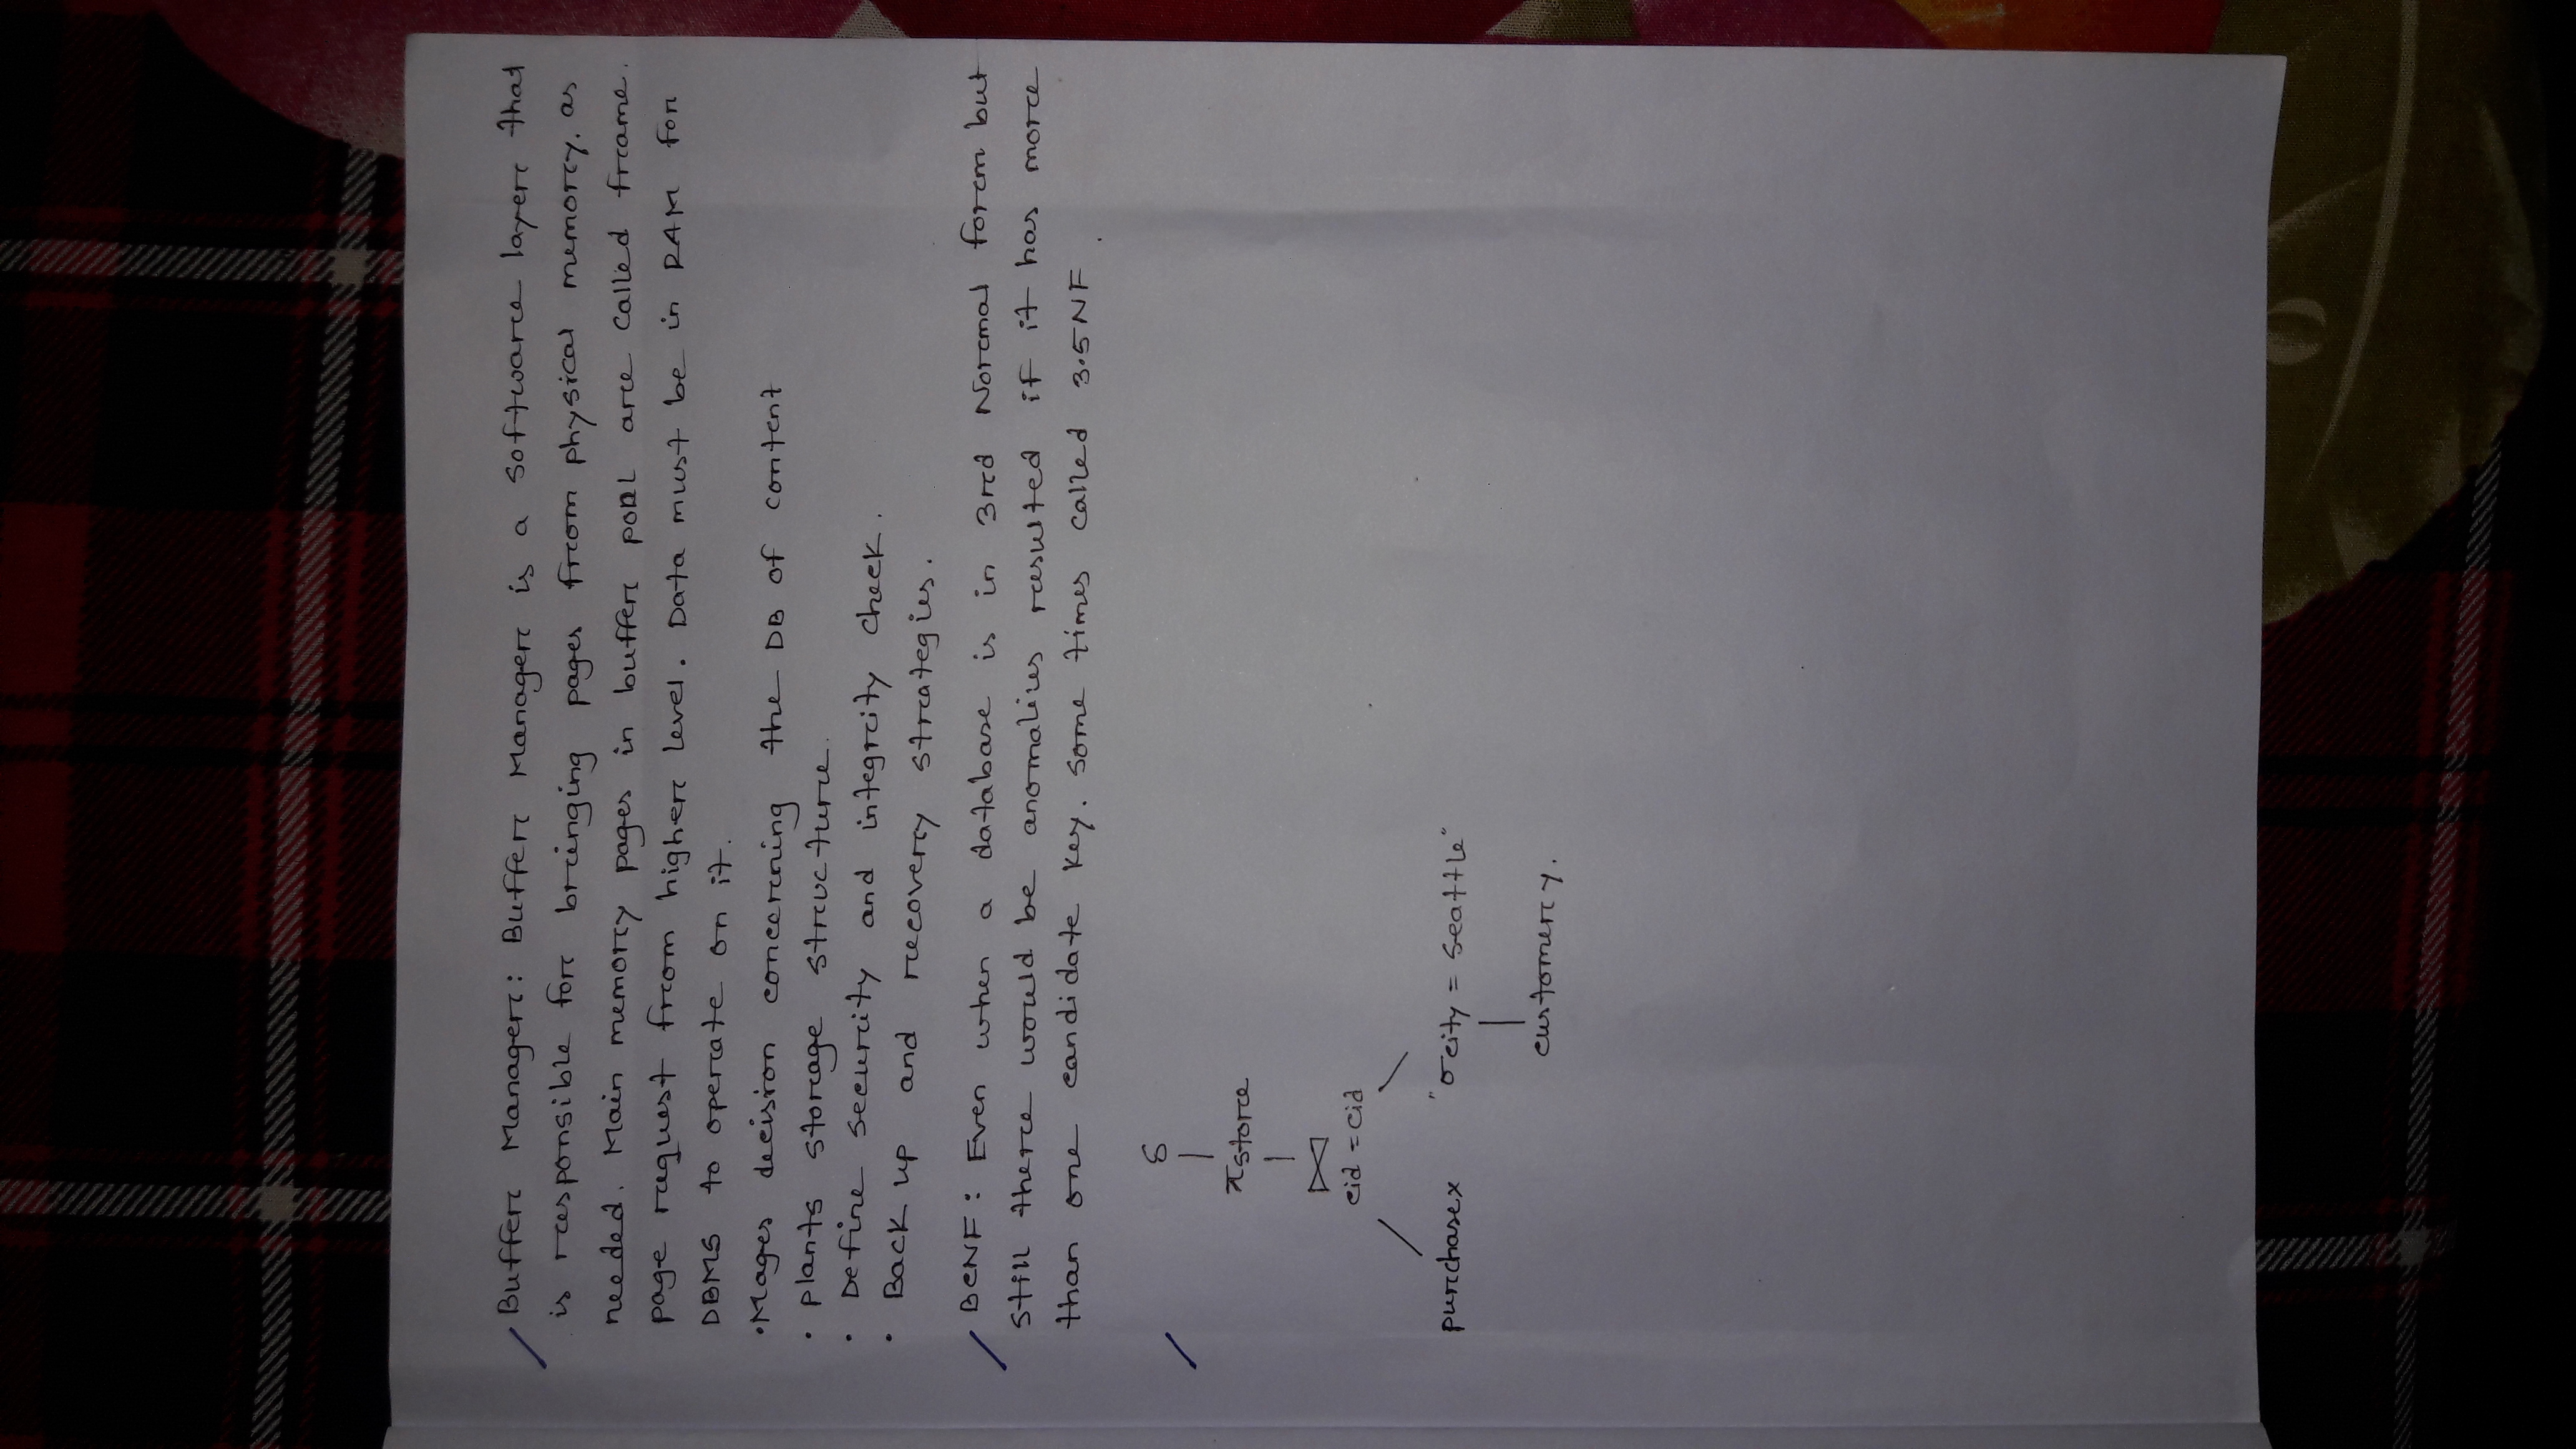 Buffer Manager: Buffer Manager is a software layer that
is responsible for bringing pages from physical memory. as
needed. Main memory pages in buffer pool are called frame.
page request from higher level. Data must be in RAM for
DBMS to operate on it.
• Mages decision concerning the DB of content
• plants storage structure.
• Define security and integrity check.
• Back up and recovery strategies.
BCNF: Even when a database is in 3rd Normal form but
still there would be anomalies resulted if it has more
than one candidate key. some times called 3.5NF
δ
π store
⋈
cid = cid
purchase x "σ city = seattle"
customer y.